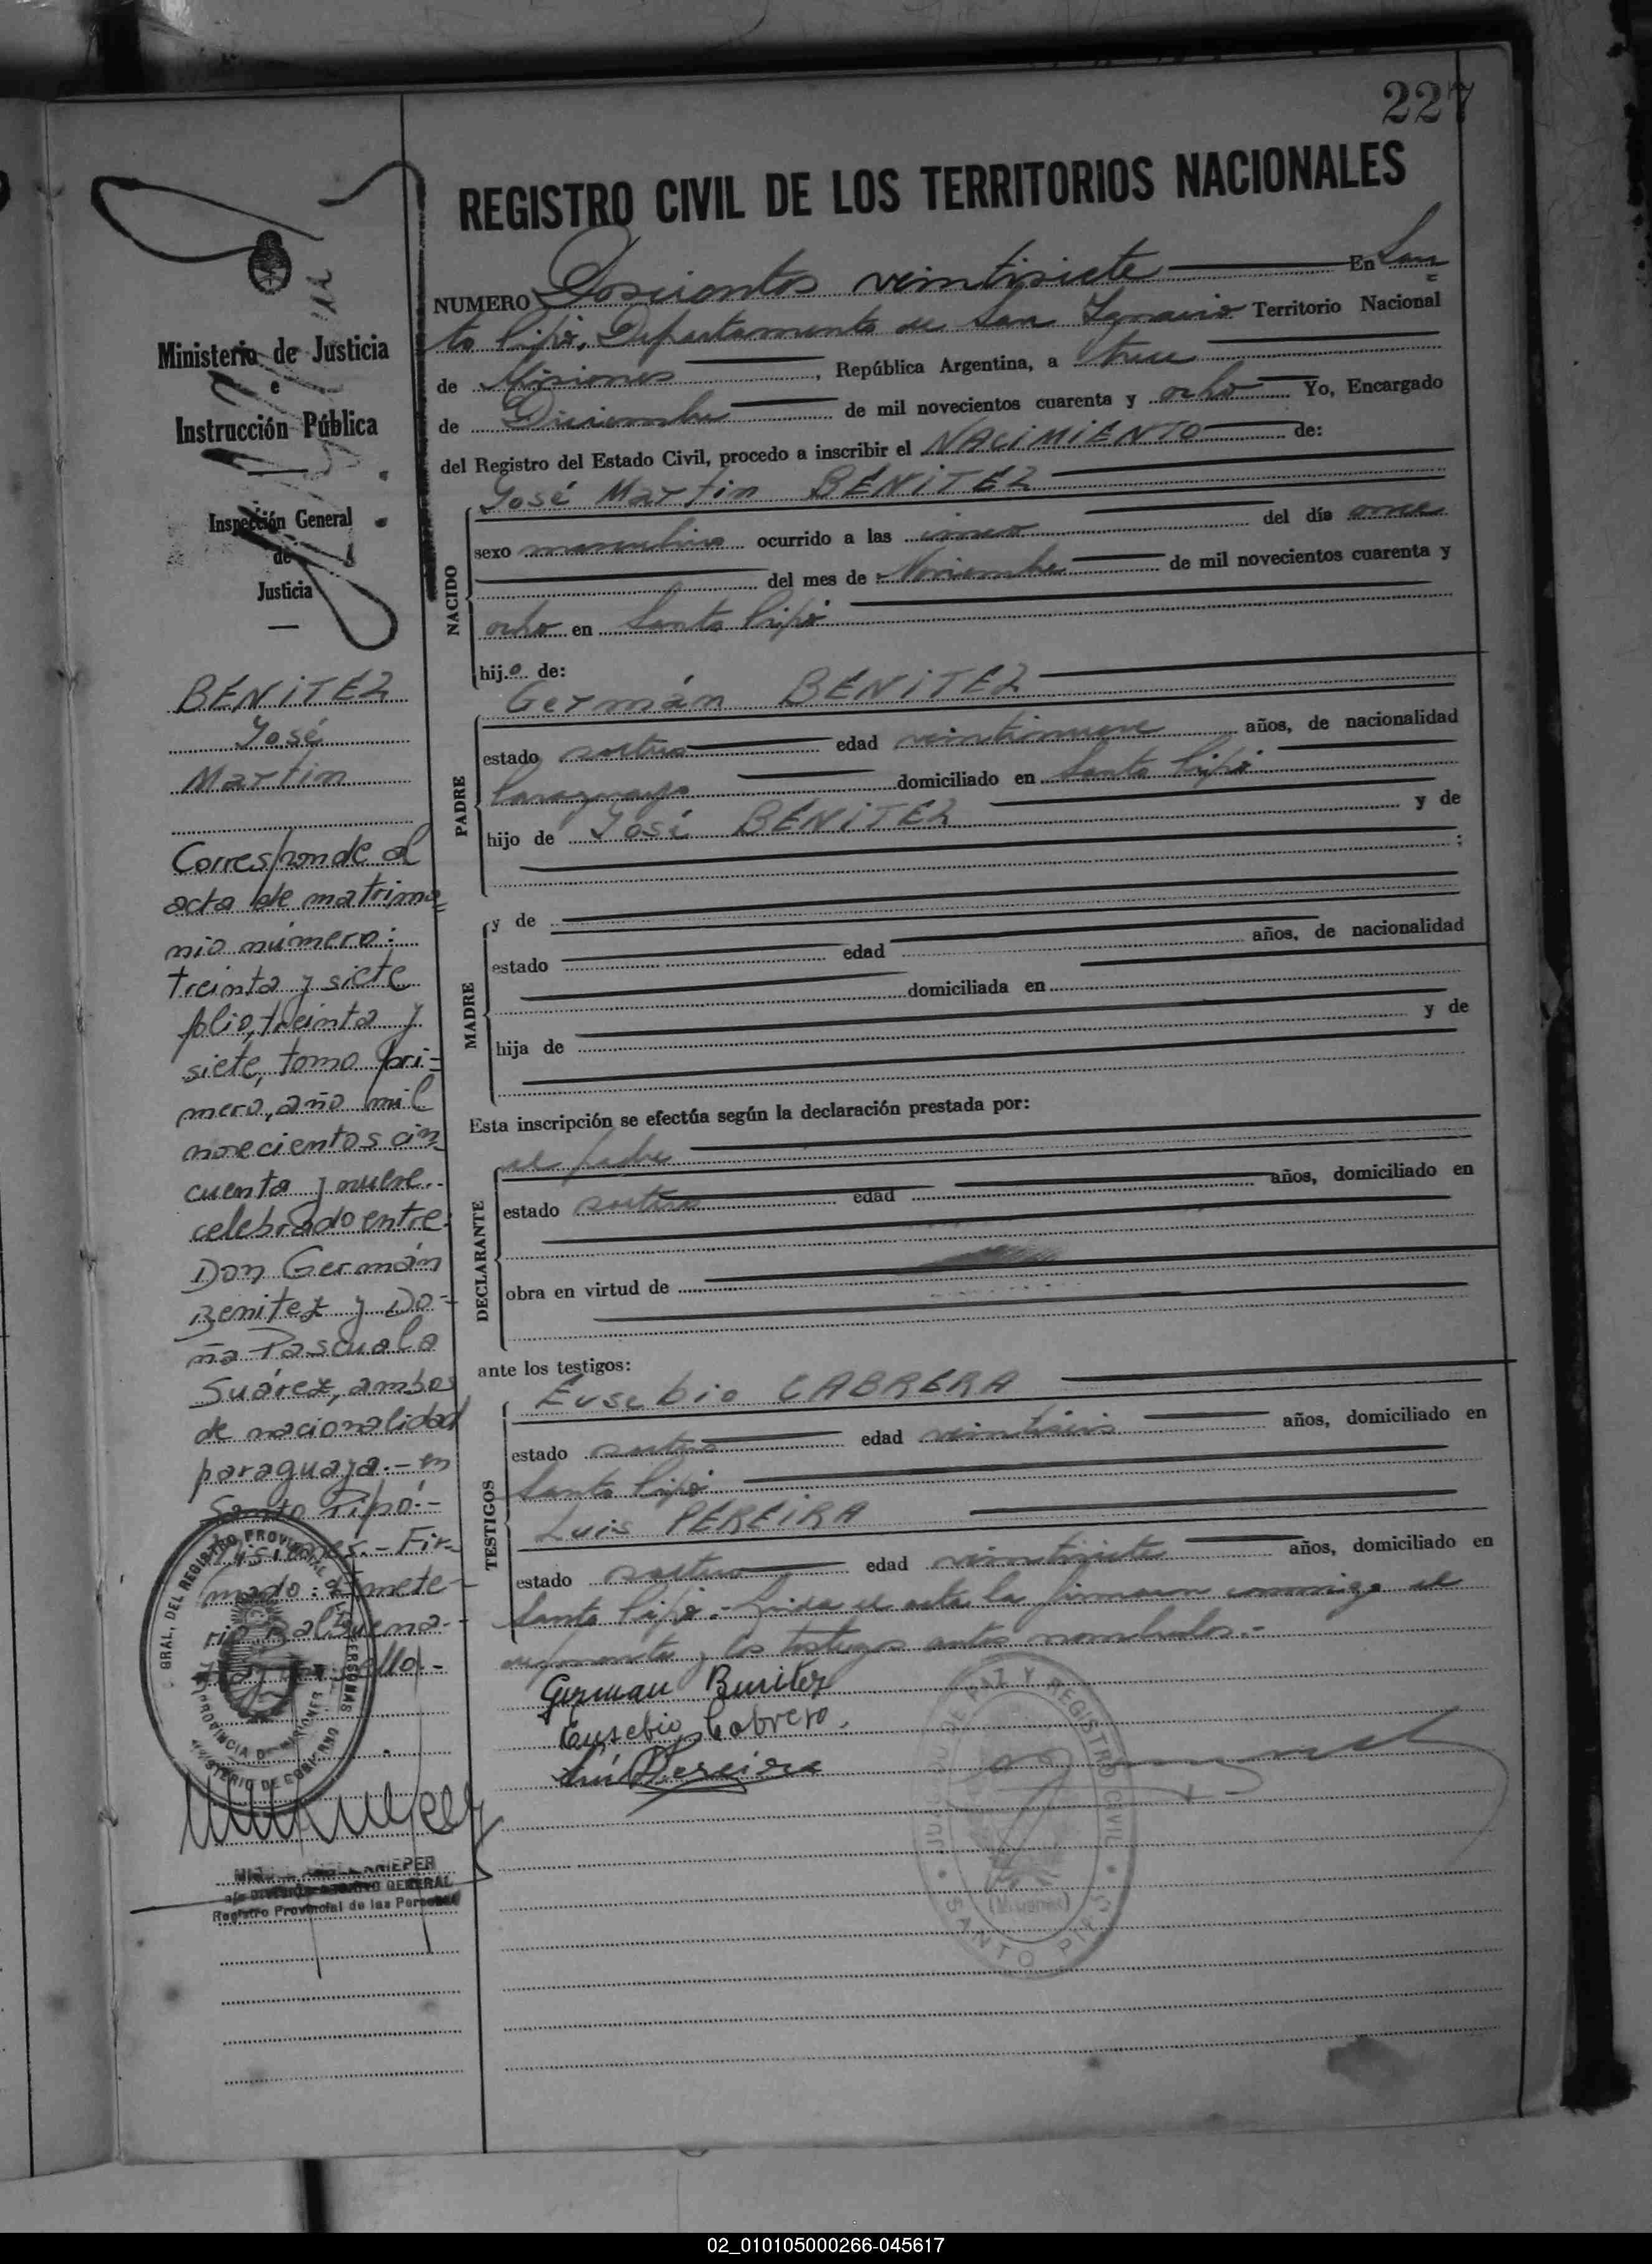 227
REGISTRO CIVIL DE LOS TERRITORIOS NACIONALES
NUMERO Doscientos veintisiete En San
to Pipó, Departamento de San Ignacio Territorio Nacional
de Misiones, República Argentina, a trece
de Diciembre de mil novecientos cuarenta y ocho Yo, Encargado
del Registro del Estado Civil, procedo a inscribir el NACIMIENTO de:
José Martin BENITEZ
NACIDO
sexo masculino ocurrido a las cinco del día once
del mes de Noviembre de mil novecientos cuarenta y
ocho en Santo Pipó
hijo de:
Germán BENITEZ
PADRE
estado soltero edad veintinueve años, de nacionalidad
Paraguayo domiciliado en Santo Pipó
hijo de José BENITEZ y de
;
MADRE
y de
estado edad años, de nacionalidad
domiciliada en
hija de y de
Esta inscripción se efectúa según la declaración prestada por:
el padre
DECLARANTE
estado soltero edad años, domiciliado en
obra en virtud de
ante los testigos:
Eusebio CABRERA
TESTIGOS
estado soltero edad veintiseis años, domiciliado en
Santo Pipó
Luis PEREIRA
estado soltero edad veintisiete años, domiciliado en
Santo Pipó.- Leida el acta la firmaron conmigo el
exponente y los testigos antes nombrados.-
German Benitez
Eusebio Cabrera.
Luis Pereira
JUZGADO DE PAZ Y REGISTRO CIVIL
SANTO PIPO
(Misiones)
Ministerio de Justicia
e
Instrucción Pública
Inspección General
de
Justicia
BENITEZ
José
Martin
Corresponde al
acta de matrimo
nio número:
treinta y siete
folio, treinta y
siete, tomo pri-
mero, año mil
novecientos cin
cuenta y nueve.-
celebrado entre:
Don Germán
Benitez y Do-
ña Pascuala
Suárez, ambos
de nacionalidad
paraguaya.- en
Santo Pipó.-
Misiones.- Fir-
mado: Emete-
rio Balbuena.-
Hay un sello.-
GRAL. DEL REGISTRO PROVINCIAL DE LAS PERSONAS
PROVINCIA DE MISIONES
MINISTERIO DE GOBIERNO
a/c DIVISION ARCHIVO GENERAL
Registro Provincial de las Personas
02_010105000266-045617